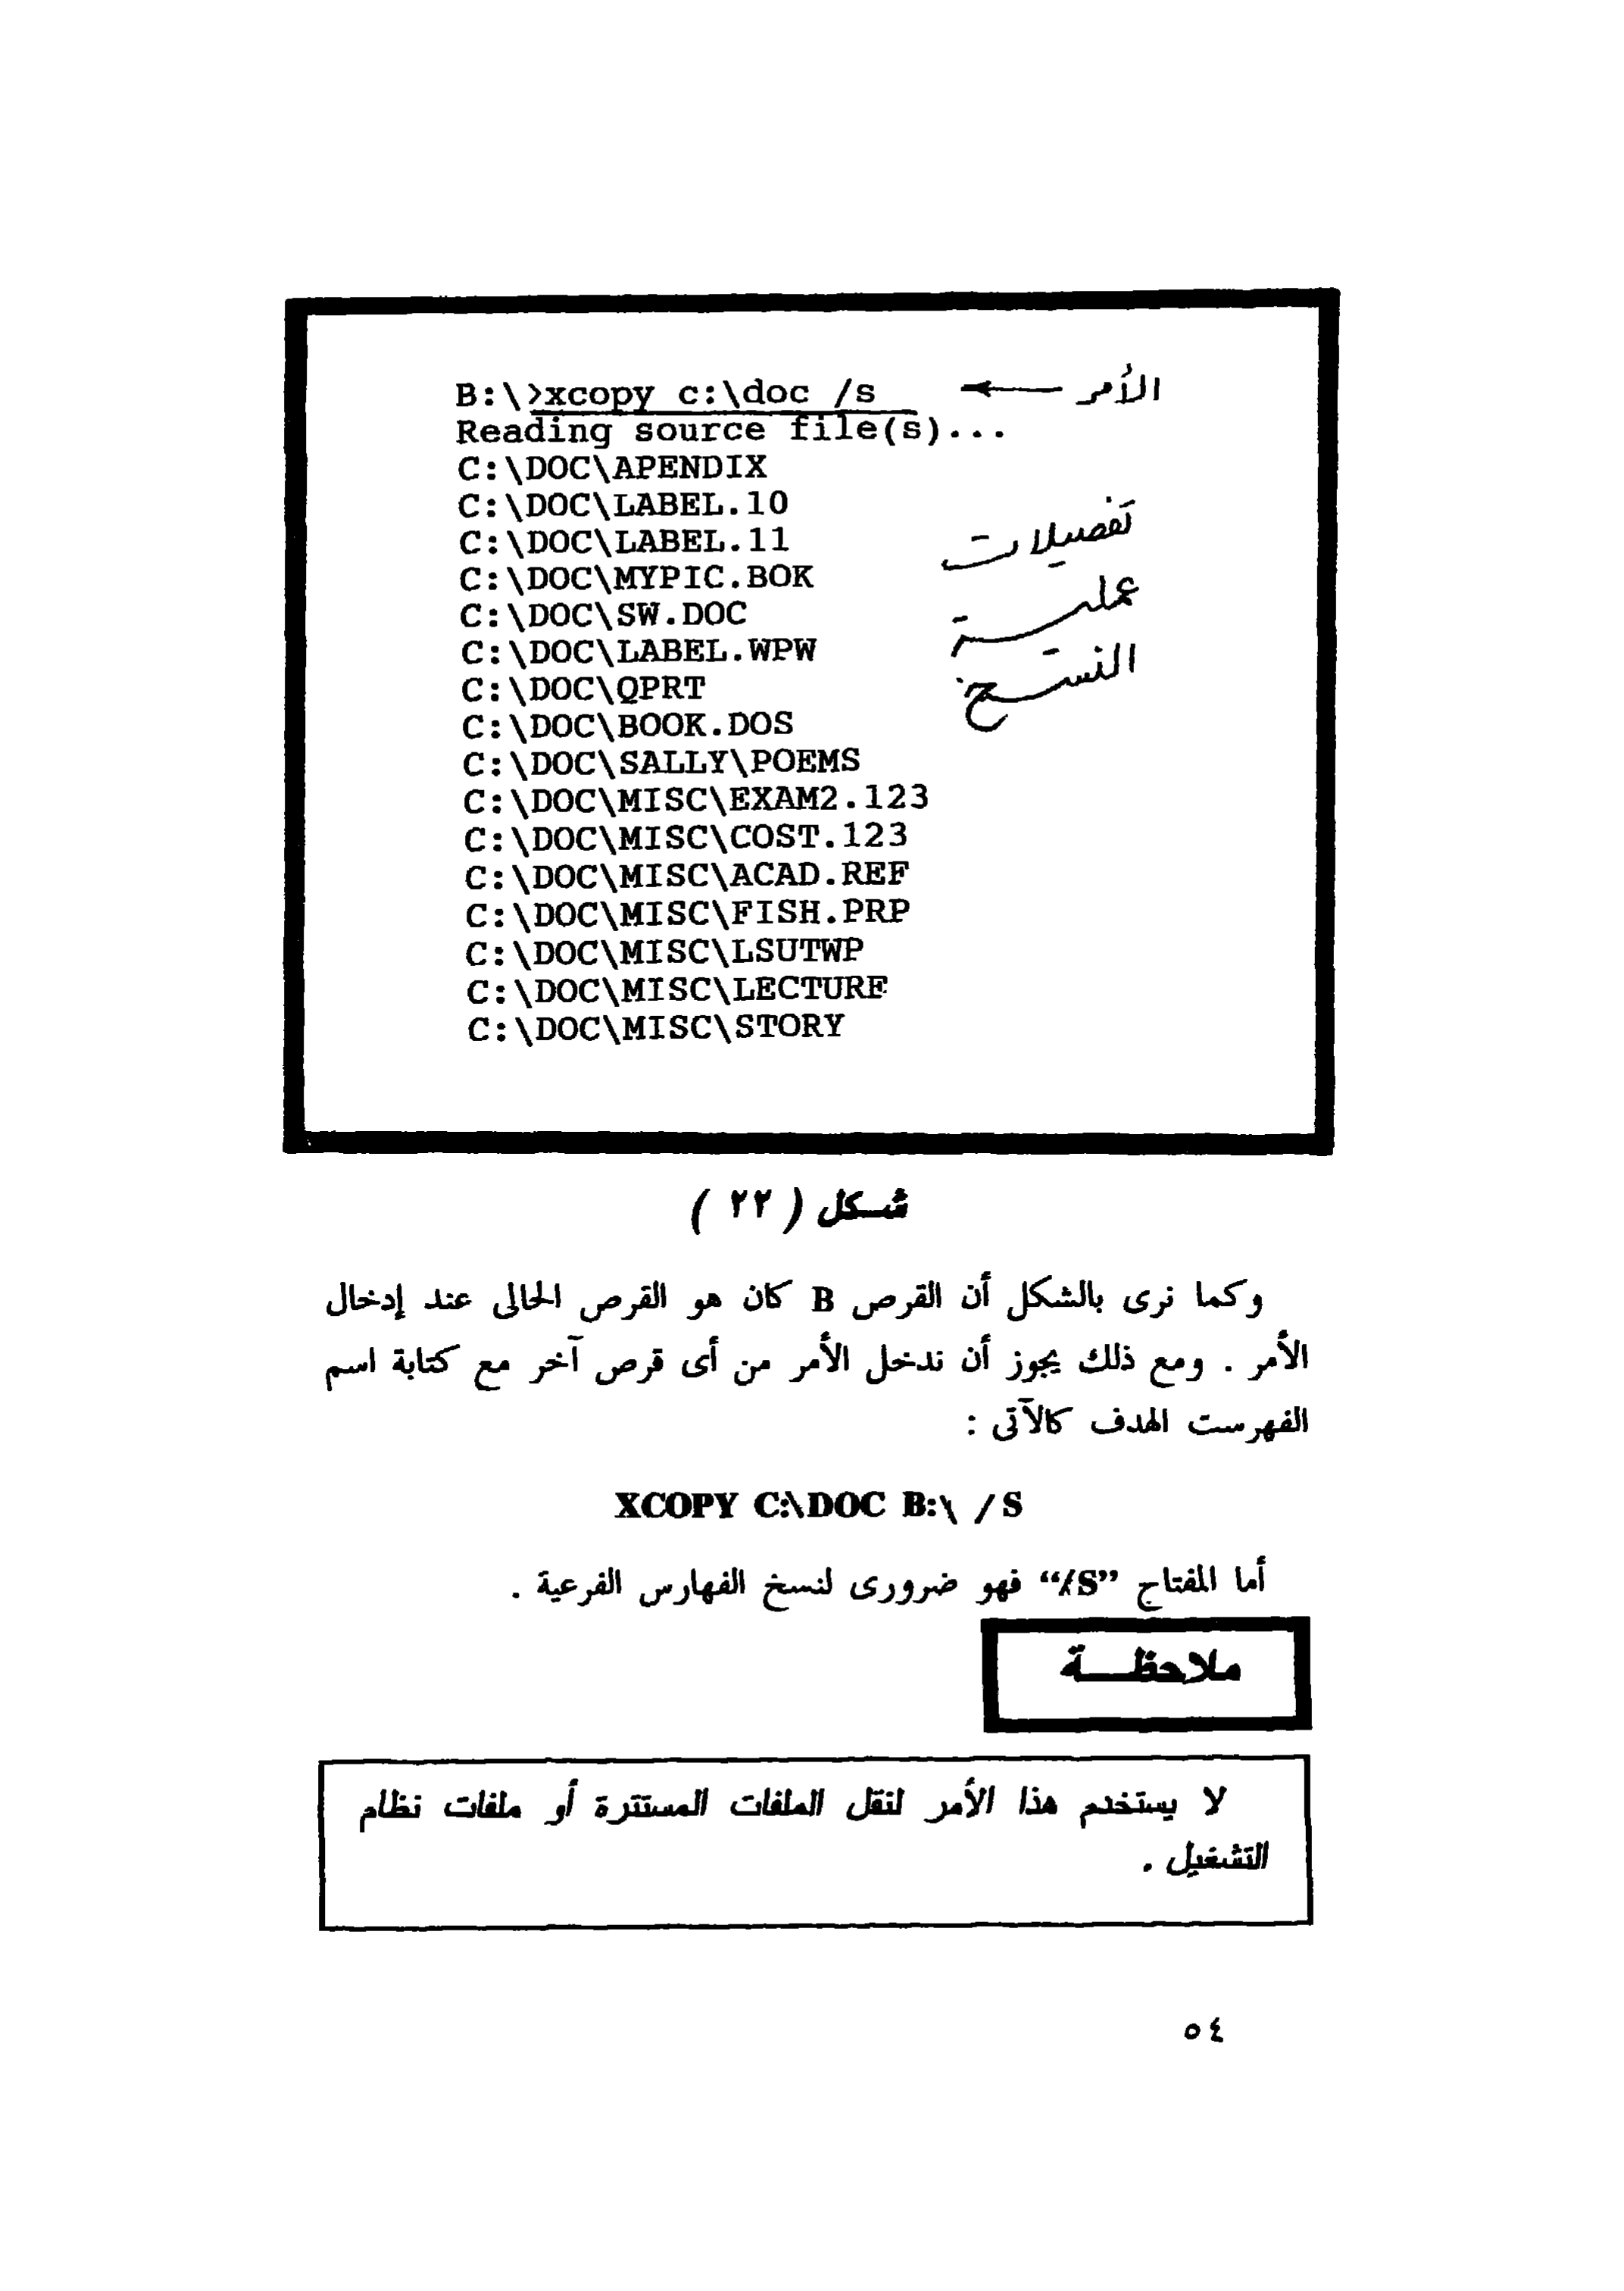 B:\>xcopy c:\doc /s ← الأمر
Reading source file(s)...
C:\DOC\APENDIX
C:\DOC\LABEL.10
C:\DOC\LABEL.11
C:\DOC\MYPIC.BOK
C:\DOC\SW.DOC
C:\DOC\LABEL.WPW
C:\DOC\QPRT
C:\DOC\BOOK.DOS
C:\DOC\SALLY\POEMS
C:\DOC\MISC\EXAM2.123
C:\DOC\MISC\COST.123
C:\DOC\MISC\ACAD.REF
C:\DOC\MISC\FISH.PRP
C:\DOC\MISC\LSUTWP
C:\DOC\MISC\LECTURE
C:\DOC\MISC\STORY
تفصيلات
عملية
النسخ
شكل ( ٢٢ )
وكما نرى بالشكل أن القرص B كان هو القرص الحالى عند إدخال
الأمر . ومع ذلك يجوز أن ندخل الأمر من أى قرص آخر مع كتابة اسم
الفهرست الهدف كالآتى :
XCOPY C:\DOC B:\ /S
أما المفتاح “/S” فهو ضرورى لنسخ الفهارس الفرعية .
ملاحظة
لا يستخدم هذا الأمر لنقل الملفات المستترة أو ملفات نظام
التشغيل .
٥٤